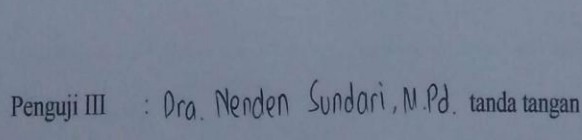 Penguji III : Dra. Nenden Sundari, M.Pd. tanda tangan